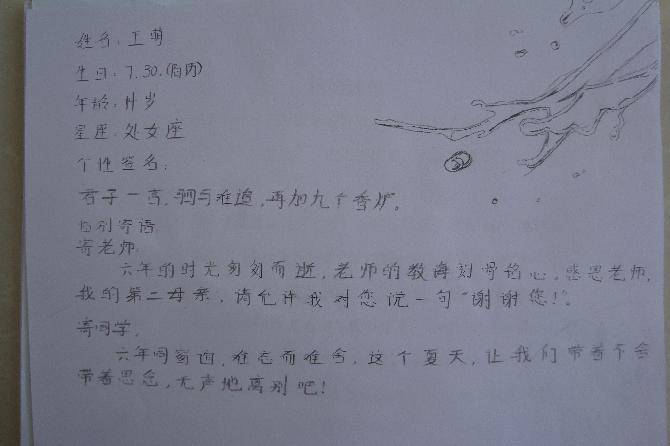 姓名：王萌
生日：7.30.(阴历)
年龄：什岁
星座：处女座
个性签名：
君子一言，驷马难追，再加九个香炉。
临别寄语
寄老师：
六年的时光匆匆而逝，老师的教诲刻骨铭心，感恩老师，
我的第二母亲，请允许我对您说一句“谢谢您！”。
寄同学：
六年同窗谊，难忘而难舍，这个夏天，让我们带着不舍
带着思念，无声地离别吧！